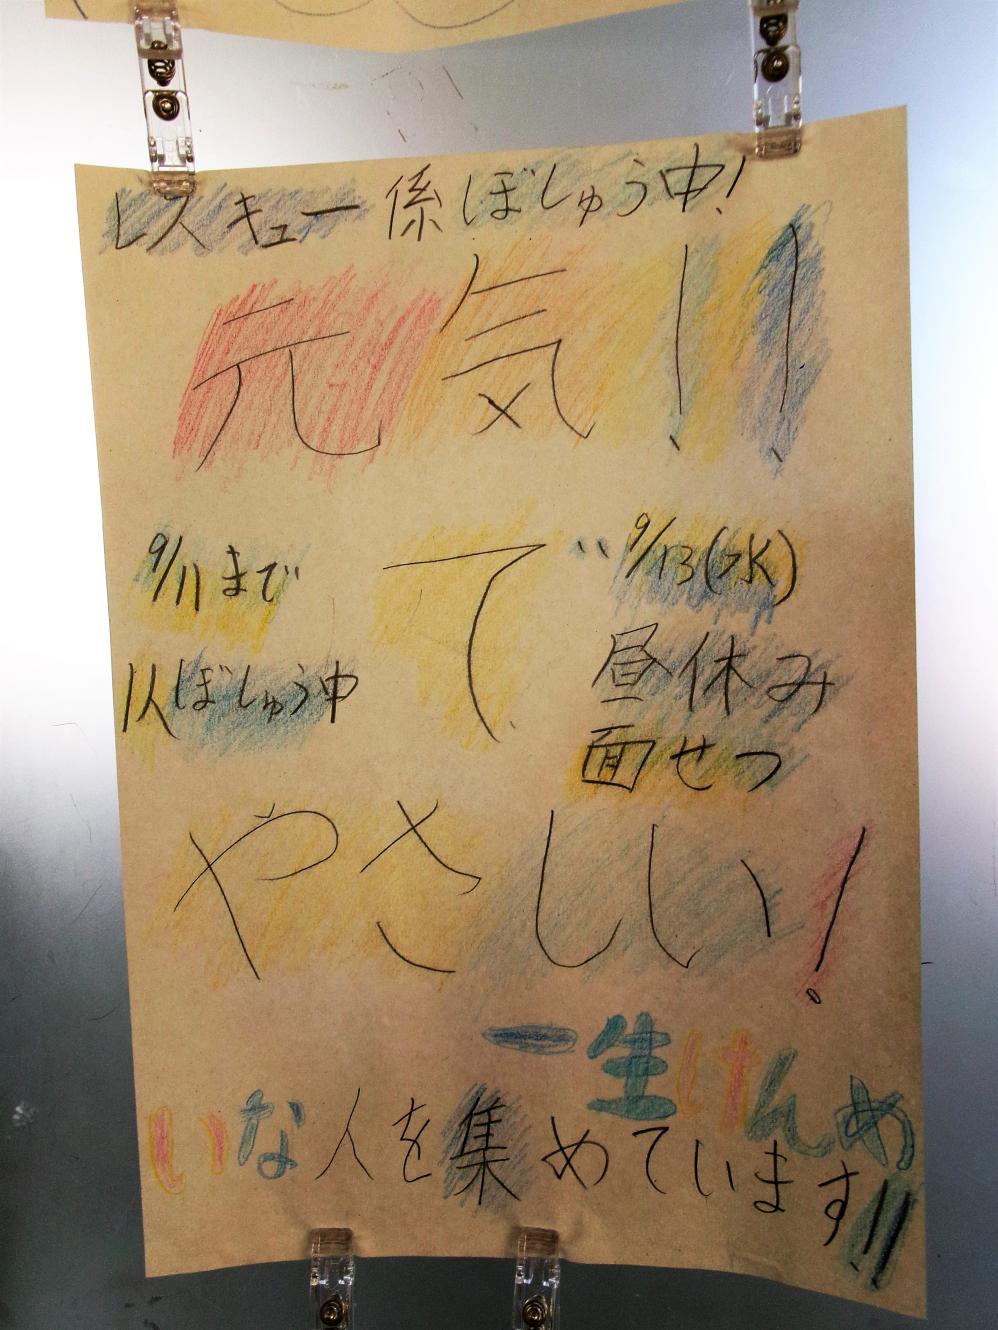 レスキュー係ぼしゅう中!
元気!!
9/11まで
1人ぼしゅう中
で
9/13(水)
昼休み
面せつ
やさしい!
一生けんめ
いな人を集めています!!